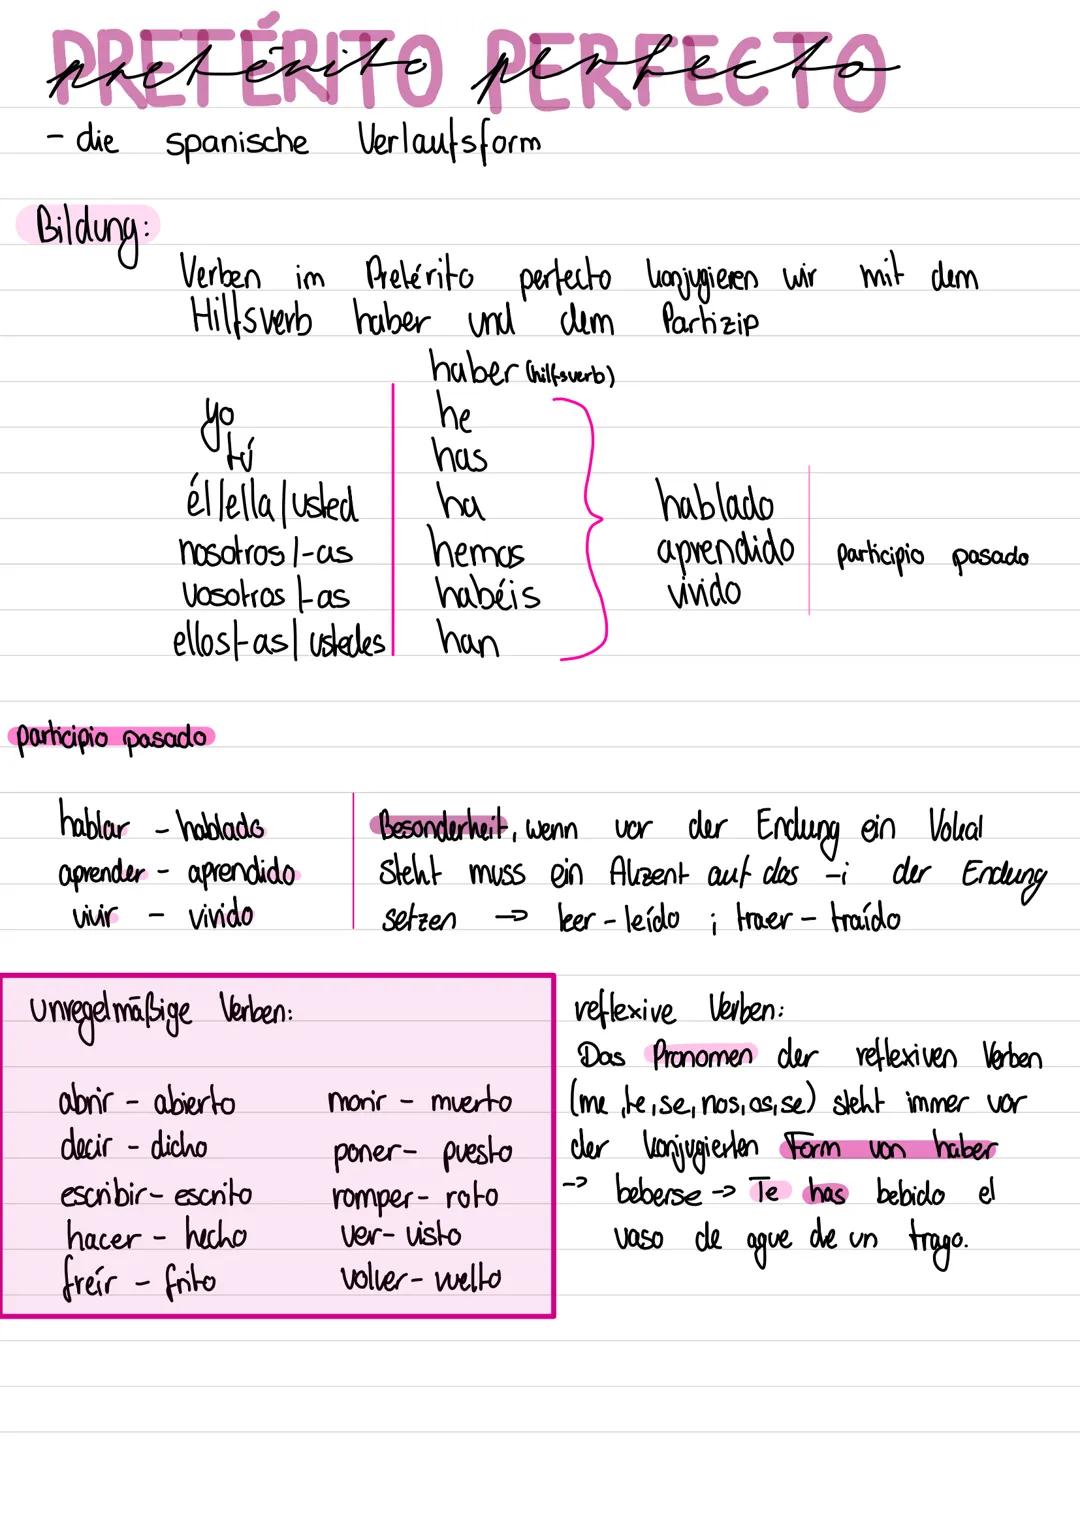 PRETÉRITO PERFECTO
pretérito perfecto
- die spanische Verlaufsform
Bildung:
Verben im Pretérito perfecto konjugieren wir mit dem
Hilfsverb haber und dem Partizip
haber (hilfsverb)
yo he
tú has
él/ella/usted ha hablado
nosotros/-as hemos aprendido participio pasado
vosotros/-as habéis vivido
ellos/-as/ustedes han
participio pasado
hablar - hablado
aprender - aprendido
vivir - vivido
Besonderheit, wenn vor der Endung ein Vokal
steht muss ein Akzent auf das -i der Endung
setzen → leer - leído ; traer - traído
unregelmäßige Verben:
abrir - abierto morir - muerto
decir - dicho poner - puesto
escribir - escrito romper - roto
hacer - hecho ver - visto
freír - frito volver - vuelto
reflexive Verben:
Das Pronomen der reflexiven Verben
(me, te, se, nos, os, se) steht immer vor
der konjugierten Form von haber
-> beberse -> Te has bebido el
vaso de ague de un trago.